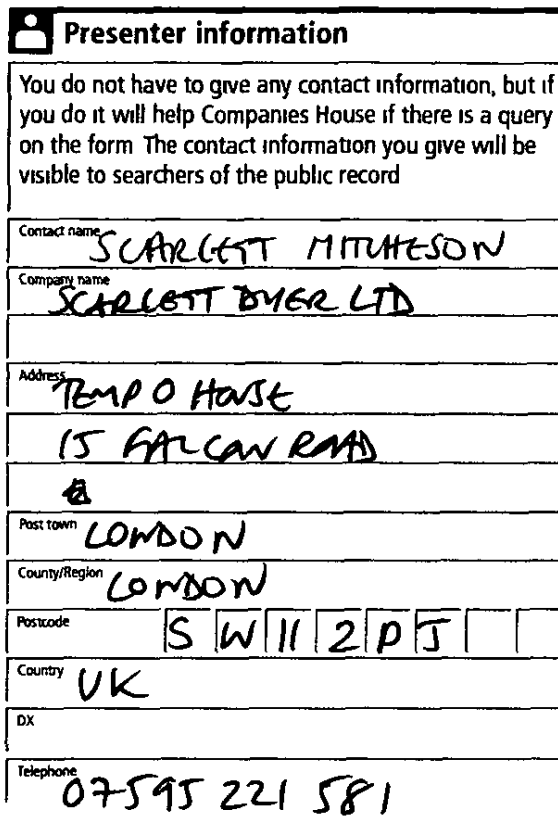 Presenter information
You do not have to give any contact information, but if
you do it will help Companies House if there is a query
on the form The contact information you give will be
visible to searchers of the public record
Contact name SCARLETT MITCHESON
Company name
SCARLETT DYER LTD
Address
TEMPO HOUSE
15 FALCON ROAD
Post town LONDON
County/Region LONDON
Postcode SW11 2PJ
Country UK
DX
Telephone 07595 221 581